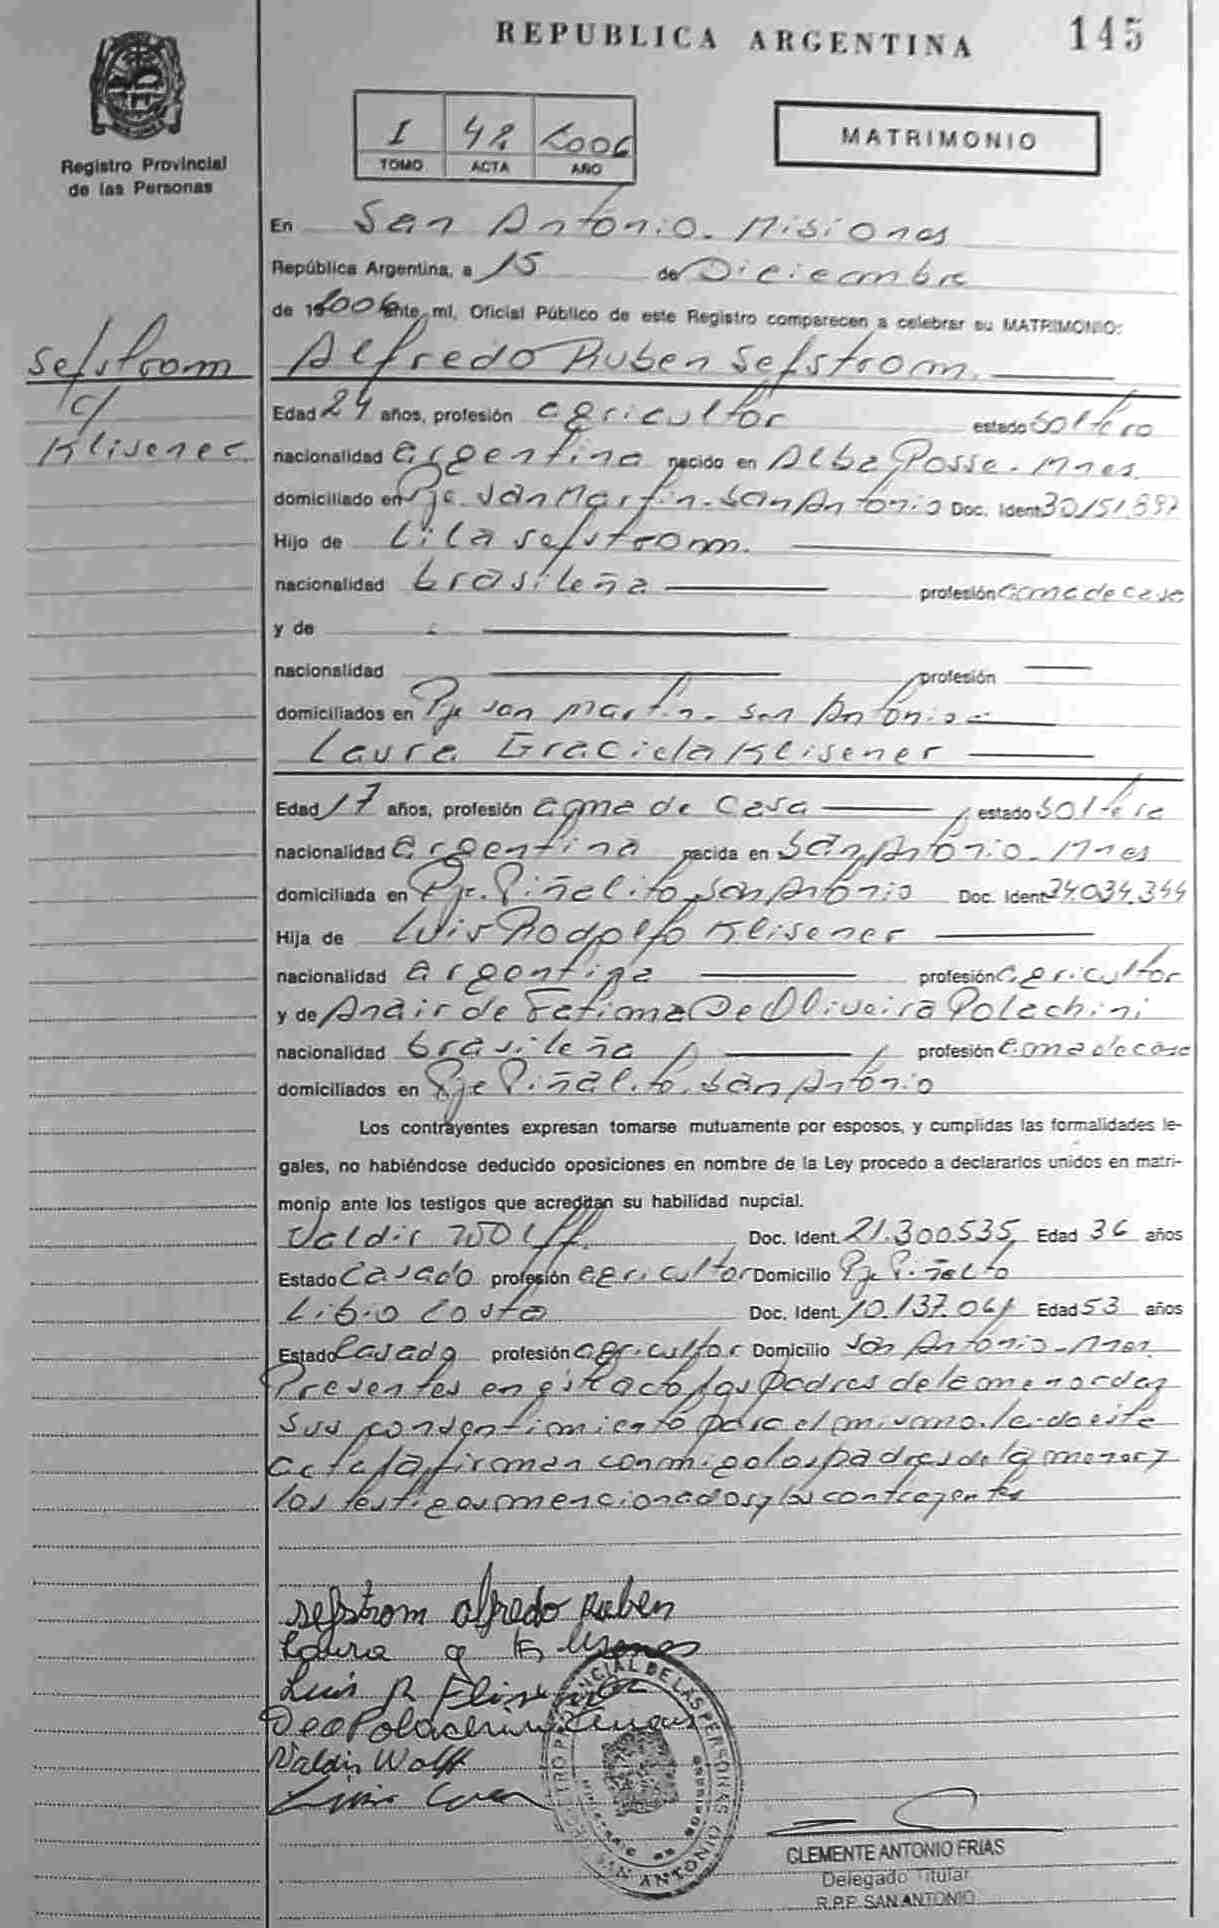 REPUBLICA ARGENTINA 145
Registro Provincial
de las Personas
I 48 2006
TOMO ACTA AÑO
MATRIMONIO
En San Antonio. Misiones
República Argentina, a 15 de Diciembre
de 2006 ante mí, Oficial Público de este Registro comparecen a celebrar su MATRIMONIO:
Sefstroom
c/
Klisener
Alfredo Ruben Sefstroom.
Edad 24 años, profesión agricultor estado soltero
nacionalidad argentina nacido en Alba Posse. Mnes.
domiciliado en Pje. San Martin. San Antonio Doc. Ident 30.151.897
Hijo de Lila Sefstroom.
nacionalidad brasileña profesión ama de casa
y de
nacionalidad profesión
domiciliados en Pje San Martin. San Antonio
Laura Graciela Klisener
Edad 17 años, profesión ama de casa estado soltera
nacionalidad argentina nacida en San Antonio. Mnes
domiciliada en Pje. Piñalito San Antonio Doc. Ident 34.034.344
Hija de Luis Rodolfo Klisener
nacionalidad argentina profesión agricultor
y de Anair de Fatima De Oliveira Polachini
nacionalidad brasileña profesión ama de casa
domiciliados en Pje Piñalito. San Antonio
Los contrayentes expresan tomarse mutuamente por esposos, y cumplidas las formalidades le-
gales, no habiéndose deducido oposiciones en nombre de la Ley procedo a declararlos unidos en matri-
monio ante los testigos que acreditan su habilidad nupcial.
Valdir Wolff. Doc. Ident. 21.300535 Edad 36 años
Estado Casado profesión agricultor Domicilio Pje Piñalito
Libio Costa Doc. Ident. 10.137.061 Edad 53 años
Estado Casado profesión agricultor Domicilio San Antonio - Mnes.
Presentes en este acto los padres de la menor dan
sus consentimiento para el mismo. leida este
acta la firman conmigo los padres de la menor y
los testigos mencionados y los contrayentes
sefstrom alfredo Ruben
Laura g Klisener
Luis R Klisener
Valdir Wolff
CLEMENTE ANTONIO FRIAS
Delegado Titular
R.P.P. SAN ANTONIO